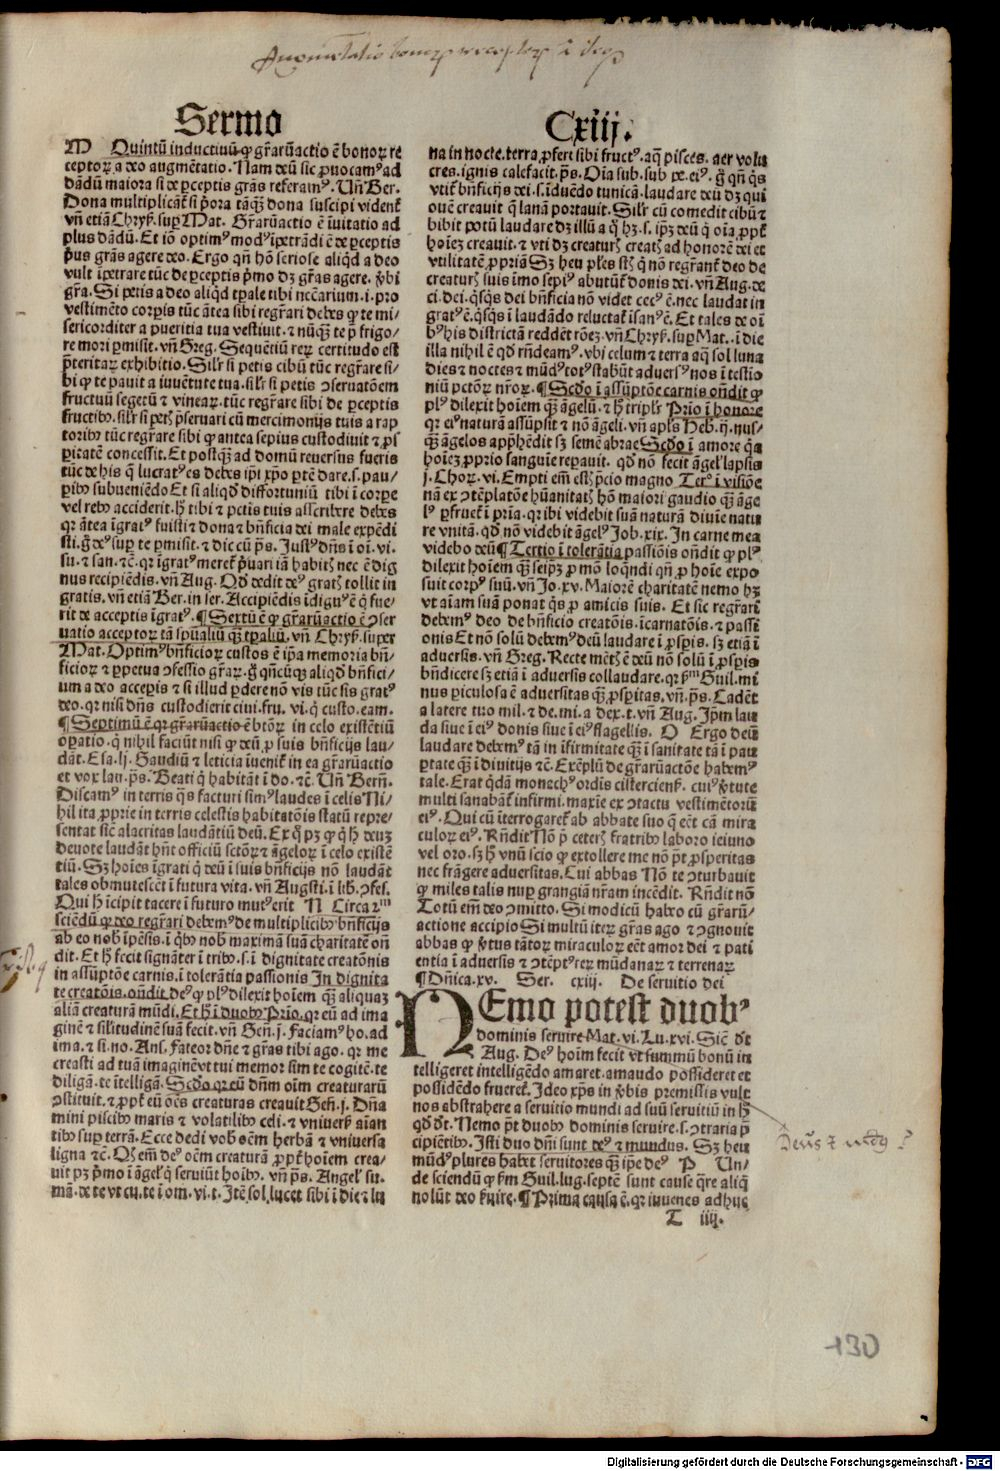 Sermo
Cxiij.
M Quintū inductiuū ꝙ gr̄aꝝactio ē bonoꝝ re
ceptoꝝ a deo augmētatio. Nam deū sic ꝓuocamꝰ ad
dādū maiora si de ꝑceptis grās referamꝰ. Vn̄ Ber.
Dona multiplicāt̄ si p̄ora tāꝙ̄ dona suscipi vident̄
vn̄ etiā Chryſ. suꝑ Mat. Gr̄aꝝactio ē inuitatio ad
plus dādū. Et iō optimꝰ modꝰ īpetrādi ē de ꝑceptis
pͥus grās agere deo. Ergo qn̄ hō seriose aliqd̄ a deo
vult īpetrare tūc de ꝑceptis pͥmo dꝫ grās agere. ꝟbi
gr̄a. Si petis a deo aliqd̄ tꝑale tibi nc̄earium. i. pro
vestimēto corꝑis tūc āntea sibi regr̄ari debes ꝙ te mi/
sericorditer a pueritia tua vestiuit. ⁊ nūꝙ̄ te p̄ frigo/
re mori ꝑmisit. vn̄ Greg. Sequētiū reꝝ certitudo est
p̄teritaꝝ exhibitio. Silr̄ si petis cibū tūc regr̄are si/
bi ꝙ te pauit a iuuētute tua. silr̄ si petis ꝯseruatōem
fructuū segetū ⁊ vineaꝝ. tūc regr̄are sibi de ꝑceptis
fructibꝰ. silr̄ si petꝭ p̄seruari cū mercimonijs tuis a rap
toribꝰ tūc regr̄are sibi ꝙ antea sepius custodiuit ⁊ ꝓs
ꝑitatē concessit. Et postꝙ̄ ad domū reuersus fueris
tūc de his q̄ lucratꝰ es debes ip̄i xp̄o ꝑtē dare. s. pau/
ꝑibꝰ subueniēdo Et si aliqd̄ diffortuniū tibi ī corꝑe
vel rebꝰ acciderit. hͦ tibi ⁊ pctīs tuis asscribere debes
qꝛ āntea īgratꝰ fuisti ⁊ dona ⁊ bn̄ficia dei male expēdi
sti. ḡ deꝰ suꝑ te ꝑmisit. ⁊ dic cū pͥs. Justꝰ dn̄s ī oī. vi.
su. ⁊ san. ⁊c̄. qꝛ īgratꝰ meret̄ pͥuari iā habitꝭ nec ē dig
nus recipiēdis. vn̄ Aug. Qd̄ dedit deꝰ gratꝭ tollit in
gratis. vn̄ etiā Ber. in ser. Accipiēdis īdignꝰ ē q̇ fue/
rit de acceptis īgratꝰ. ¶ Sextū ē ꝙ gr̄aꝝactio ē ꝯser
uatio acceptoꝝ tā spūaliū ꝙ̄ tꝑaliū. vn̄ Chryſ. super
Mat. Optimꝰ bn̄ficioꝝ custos ē ip̄a memoria bn̄/
ficioꝝ ⁊ ꝑpetua ꝯfessio gr̄aꝝ. ḡ qn̄cūqꝫ aliqd̄ bn̄fici/
um a deo acceꝑis ⁊ si illud ꝑdere nō vis tūc sis gratꝰ
deo. qꝛ nisi dn̄s custodierit ciui. fru. vi. q̇ custo. eam.
¶ Septimū ē. qꝛ gr̄aꝝactio ē btōꝝ in celo existētiū
oꝑatio. q̇ nihil faciūt nisi ꝙ deū ꝓ suis bn̄ficijs lau/
dāt. Esa. lj. Gaudiū ⁊ leticia īuenit̄ in ea gr̄aꝝactio
et vox lau. pͥs. Beati q̇ habitāt ī do. ⁊c̄. Vn̄ Bern̄.
Discamꝰ in terris qͣs facturi simꝰ laudes ī celis Ni/
hil ita ꝓprie in terris celestis habitatōis statū repre/
sentat sic̄ alacritas laudātiū deū. Ex q̊ pꝫ ꝙ q̇ hͥ deuꝫ
deuote laudāt hn̄t officiū sctōꝝ ⁊ āngeloꝝ ī celo existē
tiū. Sꝫ hoīes īgrati q̇ deū ī suis bn̄ficijs nō laudāt
tales obmutescēt ī futura vita. vn̄ Augsti. ī lib. ꝯfes.
Qui hͥ īcipit tacere ī futuro mutꝰ erit N Circa 2ᵐ
sciēdū ꝙ deo regr̄ari debemꝰ de multiplicibꝰ bn̄ficijs
ab eo nob̄ īpēsis. ī q̇bꝰ nob̄ maximā suā charitatē on̄
dit. Et hͦ fecit signāter ī tribꝰ. s. ī dignitate creatōnis
in assūptōe carnis. ī tolerātia passionis In dignita
te creatōis. on̄dit deꝰ ꝙ plꝰ dilexit hoīem ꝙ̄ aliquaꝫ
aliā creaturā mūdi. Et hͦ ī duobꝰ Prīo. qꝛ eū ad ima
ginē ⁊ sil̄itudinē suā fecit. vn̄ Gen̄. j. Faciamꝰ ho. ad
ima. ⁊ si. no. Anſ. Fateor dn̄e ⁊ grās tibi ago. qꝛ me
creasti ad tuā imaginē vt tui memor sim te cogitē. te
diligā. te ītelligā. Scd̄o qꝛ eū dn̄m oīm creaturarū
ꝯstituit. ⁊ ꝓpt̄ eū oēs creaturas creauit Gen̄. j. Dn̄a
mini piscibꝰ maris ⁊ volatilibꝰ celi. ⁊ vniuerſ aīan
tibꝰ suꝑ terrā. Ecce dedi vob̄ oēm herbā ⁊ vniuersa
ligna ⁊c̄. Oēm em̄ deꝰ oēm creaturā ꝓpt̄ hoīem crea/
uit pꝫ pͥmo ī āngel̄ q̇ seruiūt hoībꝰ. vn̄ pͥs. Angel̄ su.
mā. de te vt cu. te ī om. vi. t. Itē sol lucet sibi ī die ⁊ lu
na in nocte. terra ꝓfert sibi fructꝰ. aq̄ pisces. aer volu
cres. ignis calefacit. pͥs. Oīa sub. sub pe. eiꝰ. ḡ qn̄ qͥs
vtit̄ bn̄ficijs dei. s. īduēdo tunicā. laudare deū dꝫ qui
ouē creauit q̄ lanā portauit. Silr̄ cū comedit cibū ⁊
bibit potū laudare dꝫ illū a q̊ hꝫ. s. ip̄ꝫ deū q̇ oīa ꝓpt̄
hoīeꝫ creauit. ⁊ vti dꝫ creaturꝭ creatꝭ ad honorē dei et
vtilitatē ꝓpriā Sꝫ heu pl̄es st̄ q̇ nō regr̄ant̄ deo de
creaturꝭ suis īmo sepiꝰ abutūt̄ donis dei. vn̄ Aug. de
ci. dei. qͥsqͥs dei bn̄ficia nō videt cecꝰ ē. nec laudat in
gratꝰ ē. qͥsqͥs ī laudādo reluctat̄ īsanꝰ ē. Et tales de oī
bꝰ his districtā reddēt rōeꝫ. vn̄ Chryſ. suꝑ Mat.. ī die
illa nihil ē qd̄ rn̄deamꝰ. vbi celum ⁊ terra aq̄ sol luna
dies ⁊ noctes ⁊ mūdꝰ totꝰ stabūt aduersꝰ nos ī testio
niū pctōꝝ nr̄oꝝ. ¶ Scd̄o ī assūptōe carnis on̄dit ꝙ
plꝰ dilexit hoīem ꝙ̄ āngelū. ⁊ hͦ triplr̄ Prīo ī honore
qꝛ eiꝰ naturā assūpsit ⁊ nō āngeli. vn̄ apl̄s Heb. ij. nus/
ꝙ̄ āngelos apphēdit sꝫ semē abrae Scd̄o ī amore qꝛ
hoīeꝫ ꝓprio sanguīe reꝑauit. qd̄ nō fecit āngel̄ lapsis
j. Chor. vi. Empti em̄ estꝭ pͥcio magno Tercͦ ī visiōe
nā ex ꝯtēplatōe hūanitatꝭ hō maiori gaudio ꝙ̄ āge
lꝰ ꝑfruet̄ ī pr̄ia. qꝛ ibi videbit suā naturā diuīe natu
re vnitā. qd̄ nō videbit āgelꝰ Job. xix. In carne mea
videbo deū ¶ Tertio ī tolerātia passiōis on̄dit ꝙ plꝰ
dilexit hoīem ꝙ̄ seip̄ꝫ ꝓ mō loq̄ndi qn̄ ꝓ hoīe expo
suit corpꝰ suū. vn̄ Jo. xv. Maiorē charitatē nemo hꝫ
vt aīam suā ponat qͥs ꝓ amicis suis. Et sic regr̄ari
debemꝰ deo de bn̄ficio creatōis. īcarnatōis. ⁊ passi
onis Et nō solū debemꝰ deū laudare ī ꝓsꝑis. sꝫ etiā ī
aduersis. vn̄ Greg. Recte mētꝭ ē deū nō solū ī ꝓsꝑis
bn̄dicere sꝫ etiā ī aduersis collaudare. qꝛ ẜm Guil. mi
nus ꝑiculosa ē aduersitas ꝙ̄ ꝓsꝑitas. vn̄. pͥs. Cadēt
a latere tuo mil. ⁊ de. mi. a dex. t. vn̄ Aug. Ip̄m lau
da siue ī eiꝰ donis siue ī eiꝰ flagellis. O Ergo deū
laudare debemꝰ tā in īfirmitate ꝙ̄ ī sanitate tā ī pau
ꝑtate ꝙ̄ ī diuitijs ⁊c̄. Exēplū de gr̄aꝝactōe habemꝰ
tale. Erat qͥdā monachꝰ ordis cistercienſ. cuiꝰ ꝟtute
multi sanabāt̄ infirmi. maxīe ex ꝯtactu vestimētorū
eiꝰ. Qui cū īterrogaret̄ ab abbate suo q̄ eēt cā mira
culoꝝ eiꝰ. Rn̄dit Nō pͥ ceterꝭ fratribꝰ laboro ieiuno
vel oro. sꝫ hͦ vnū scio ꝙ extollere me nō pōt ꝓsperitas
nec frāgere aduersitas. Cui abbas Nō te ꝯturbauit
ꝙ miles talis nuꝑ grangiā nr̄am incēdit. Rn̄dit nō
Totū em̄ deo ꝯmitto. Si modicū habeo cū gr̄aꝝ/
actione accipio Si multū iteꝝ grās ago ⁊ ꝯgnouit
abbas ꝙ ꝟtus tātoꝝ miraculoꝝ eēt amor dei ⁊ pati
entia ī aduersis ⁊ ꝯtēptꝰ reꝝ mūdanaꝝ ⁊ terrenaꝝ
¶ Dn̄ica. xv. Ser. cxiij. De seruitio dei
NEmo potest duobꝰ
dominis seruire. Mat. vi. Lu. xvi. Sic̄ dt̄
Aug. Deꝰ hoīm fecit vt summū bonū in
telligeret intelligēdo amaret. amaudo possideret et
possidēdo frueret̄. Ideo xp̄s in ꝟbis premissis vult
nos abstrahere a seruitio mundi ad suū seruitiū in hͦ
qd̄ dt̄. Nemo pōt duobꝰ dominis seruire. s. ꝯtraria p̄
cipiētibꝰ. Isti duo dn̄i sunt deꝰ ⁊ mundus. Sꝫ heu
mūdꝰ plures habet seruitores ꝙ̄ ip̄e deꝰ P Un/
de sciendū ꝙ ẜm Guil. lug. septē sunt cause qͣre aliq̇
nolūt deo ẜuire. ¶ Prima causa ē. qꝛ iuuenes adhuc
T iiij.
Deus ⁊ mūdꝰ
130
Digitalisierung gefördert durch die Deutsche Forschungsgemeinschaft - DFG